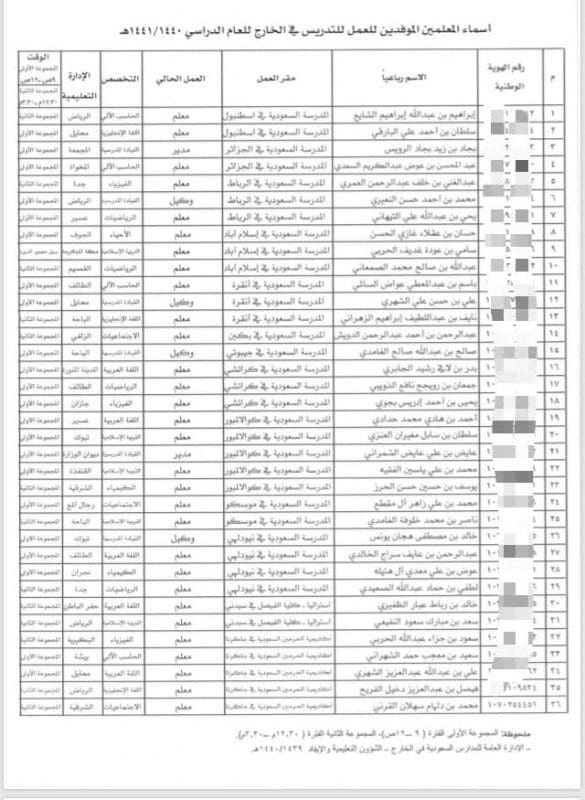 أسماء المعلمين الموفدين للعمل للتدريس في الخارج للعام الدراسي ١٤٤١/١٤٤٠هـ
م رقم الهوية الوطنية الاسم رباعياً مقر العمل العمل الحالي التخصص الإدارة التعليمية الوقت
المجموعة الأولى
٩ص-١٢ص
المجموعة الثانية
١ إبراهيم بن عبدالله إبراهيم الشايع المدرسة السعودية في اسطنبول معلم الحاسب الآلي الرياض المجموعة الثانية
٢ سلطان بن أحمد علي البارقي المدرسة السعودية في اسطنبول معلم اللغة الإنجليزية محايل المجموعة الأولى
٣ بجاد بن زيد بجاد الرويس المدرسة السعودية في الجزائر مدير القيادة المدرسية المجمعة المجموعة الثانية
٤ عبد المحسن بن عوض عبدالكريم السعدي المدرسة السعودية في الجزائر معلم الحاسب الآلي المخواة المجموعة الأولى
٥ عبدالغني بن خلف عبدالرحمن العمري المدرسة السعودية في الرباط معلم الفيزياء جدة المجموعة الثانية
٦ محمد بن أحمد حسن النعيري المدرسة السعودية في الرباط وكيل القيادة المدرسية الرياض المجموعة الأولى
٧ يحي بن عبدالله علي التيهاني المدرسة السعودية في الرباط معلم الرياضيات عسير المجموعة الأولى
٨ حسان بن عقلاء غازي الحسن المدرسة السعودية في إسلام أباد معلم الأحياء الجوف المجموعة الأولى
٩ سامي بن عودة غديف الحربي المدرسة السعودية في إسلام أباد معلم التربية الإسلامية مكة المكرمة سبق حضور الدورة
١٠ عبدالله بن صالح محمد الصمعاني المدرسة السعودية في إسلام أباد معلم الرياضيات القصيم المجموعة الثانية
١١ باسم بن عبدالمعطي عواض السالمي المدرسة السعودية في أنقرة معلم الحاسب الآلي الطائف المجموعة الأولى
١٢ علي بن حسن علي الشهري المدرسة السعودية في أنقرة وكيل القيادة المدرسية محايل المجموعة الأولى
١٣ نايف بن عبداللطيف إبراهيم الزهراني المدرسة السعودية في أنقرة معلم اللغة الإنجليزية الباحة المجموعة الثانية
١٤ عبدالرحمن بن أحمد عبدالرحمن الدويش المدرسة السعودية في بكين معلم الاجتماعيات الزلفي المجموعة الثانية
١٥ صالح بن عبدالله صالح الغامدي المدرسة السعودية في جيبوتي وكيل القيادة المدرسية الباحة المجموعة الأولى
١٦ بدر بن لافي رشيد الجابري المدرسة السعودية في كراتشي معلم اللغة العربية المدينة المنورة المجموعة الثانية
١٧ جمعان بن رويجح نافع الذويبي المدرسة السعودية في كراتشي معلم الرياضيات الطائف المجموعة الثانية
١٨ يحيى بن أحمد إدريس بجوي المدرسة السعودية في كراتشي معلم الفيزياء جازان المجموعة الأولى
١٩ أحمد بن هادي محمد حدادي المدرسة السعودية في كوالالمبور معلم اللغة العربية عسير المجموعة الأولى
٢٠ سلطان بن سايل مغيران العنزي المدرسة السعودية في كوالالمبور معلم التربية الإسلامية تبوك المجموعة الأولى
٢١ عايض بن علي عايض الشمراني المدرسة السعودية في كوالالمبور مدير القيادة المدرسية ديوان الوزارة المجموعة الأولى
٢٢ محمد بن علي ياسين الفقيه المدرسة السعودية في كوالالمبور معلم التربية الإسلامية القنفذة المجموعة الأولى
٢٣ يوسف بن حسين حسن الحرز المدرسة السعودية في كوالالمبور معلم الكيمياء الشرقية المجموعة الثانية
٢٤ محمد بن علي زاهر آل مقطع المدرسة السعودية في موسكو معلم الاجتماعيات رجال ألمع المجموعة الأولى
٢٥ ناصر بن محمد خلوفة الغامدي المدرسة السعودية في موسكو معلم التربية الإسلامية الباحة المجموعة الثانية
٢٦ خالد بن مصطفى هجان يونس المدرسة السعودية في نيودلهي وكيل القيادة المدرسية تبوك المجموعة الأولى
٢٧ عبدالرحمن بن عايف سراج الخالدي المدرسة السعودية في نيودلهي معلم اللغة العربية الطائف المجموعة الأولى
٢٨ عوض بن علي معدي آل هتيله المدرسة السعودية في نيودلهي معلم الكيمياء نجران المجموعة الأولى
٢٩ لطفي بن حماد عبدالله الصعيدي المدرسة السعودية في نيودلهي معلم الرياضيات جدة المجموعة الثانية
٣٠ خالد بن رباط عبار الظفيري استراليا - كلية الفيصل في سيدني معلم اللغة العربية حفر الباطن المجموعة الثانية
٣١ سعد بن مبارك سعود النفيعي استراليا - كلية الفيصل في سيدني معلم التربية الإسلامية الرياض المجموعة الثانية
٣٢ سعود بن جزاء عبدالله الحربي أكاديمية الحرمين السعودية في جاكرتا معلم الفيزياء البكيرية المجموعة الثانية
٣٣ سعيد بن معجب حمد الشهراني أكاديمية الحرمين السعودية في جاكرتا معلم الحاسب الآلي بيشة المجموعة الأولى
٣٤ علي بن عبدالله عبدالعزيز الشهري أكاديمية الحرمين السعودية في جاكرتا معلم اللغة العربية محايل المجموعة الأولى
٣٥ فيصل بن عبدالعزيز دخيل الفريح أكاديمية الحرمين السعودية في جاكرتا معلم اللغة الإنجليزية الرياض المجموعة الثانية
٣٦ ١٠٧٠٢٥٤٤٥١ محمد بن دلهام سهلان القرني أكاديمية الحرمين السعودية في جاكرتا معلم الاجتماعيات الشرقية المجموعة الثانية
ملحوظة: المجموعة الأولى الفترة (٩ – ١٢ص)، المجموعة الثانية الفترة (١٢,٣٠م – ٣,٣٠م).
- الإدارة العامة للمدارس السعودية في الخارج – الشؤون التعليمية والإيفاد ١٤٤٠/١٤٣٩هـ.